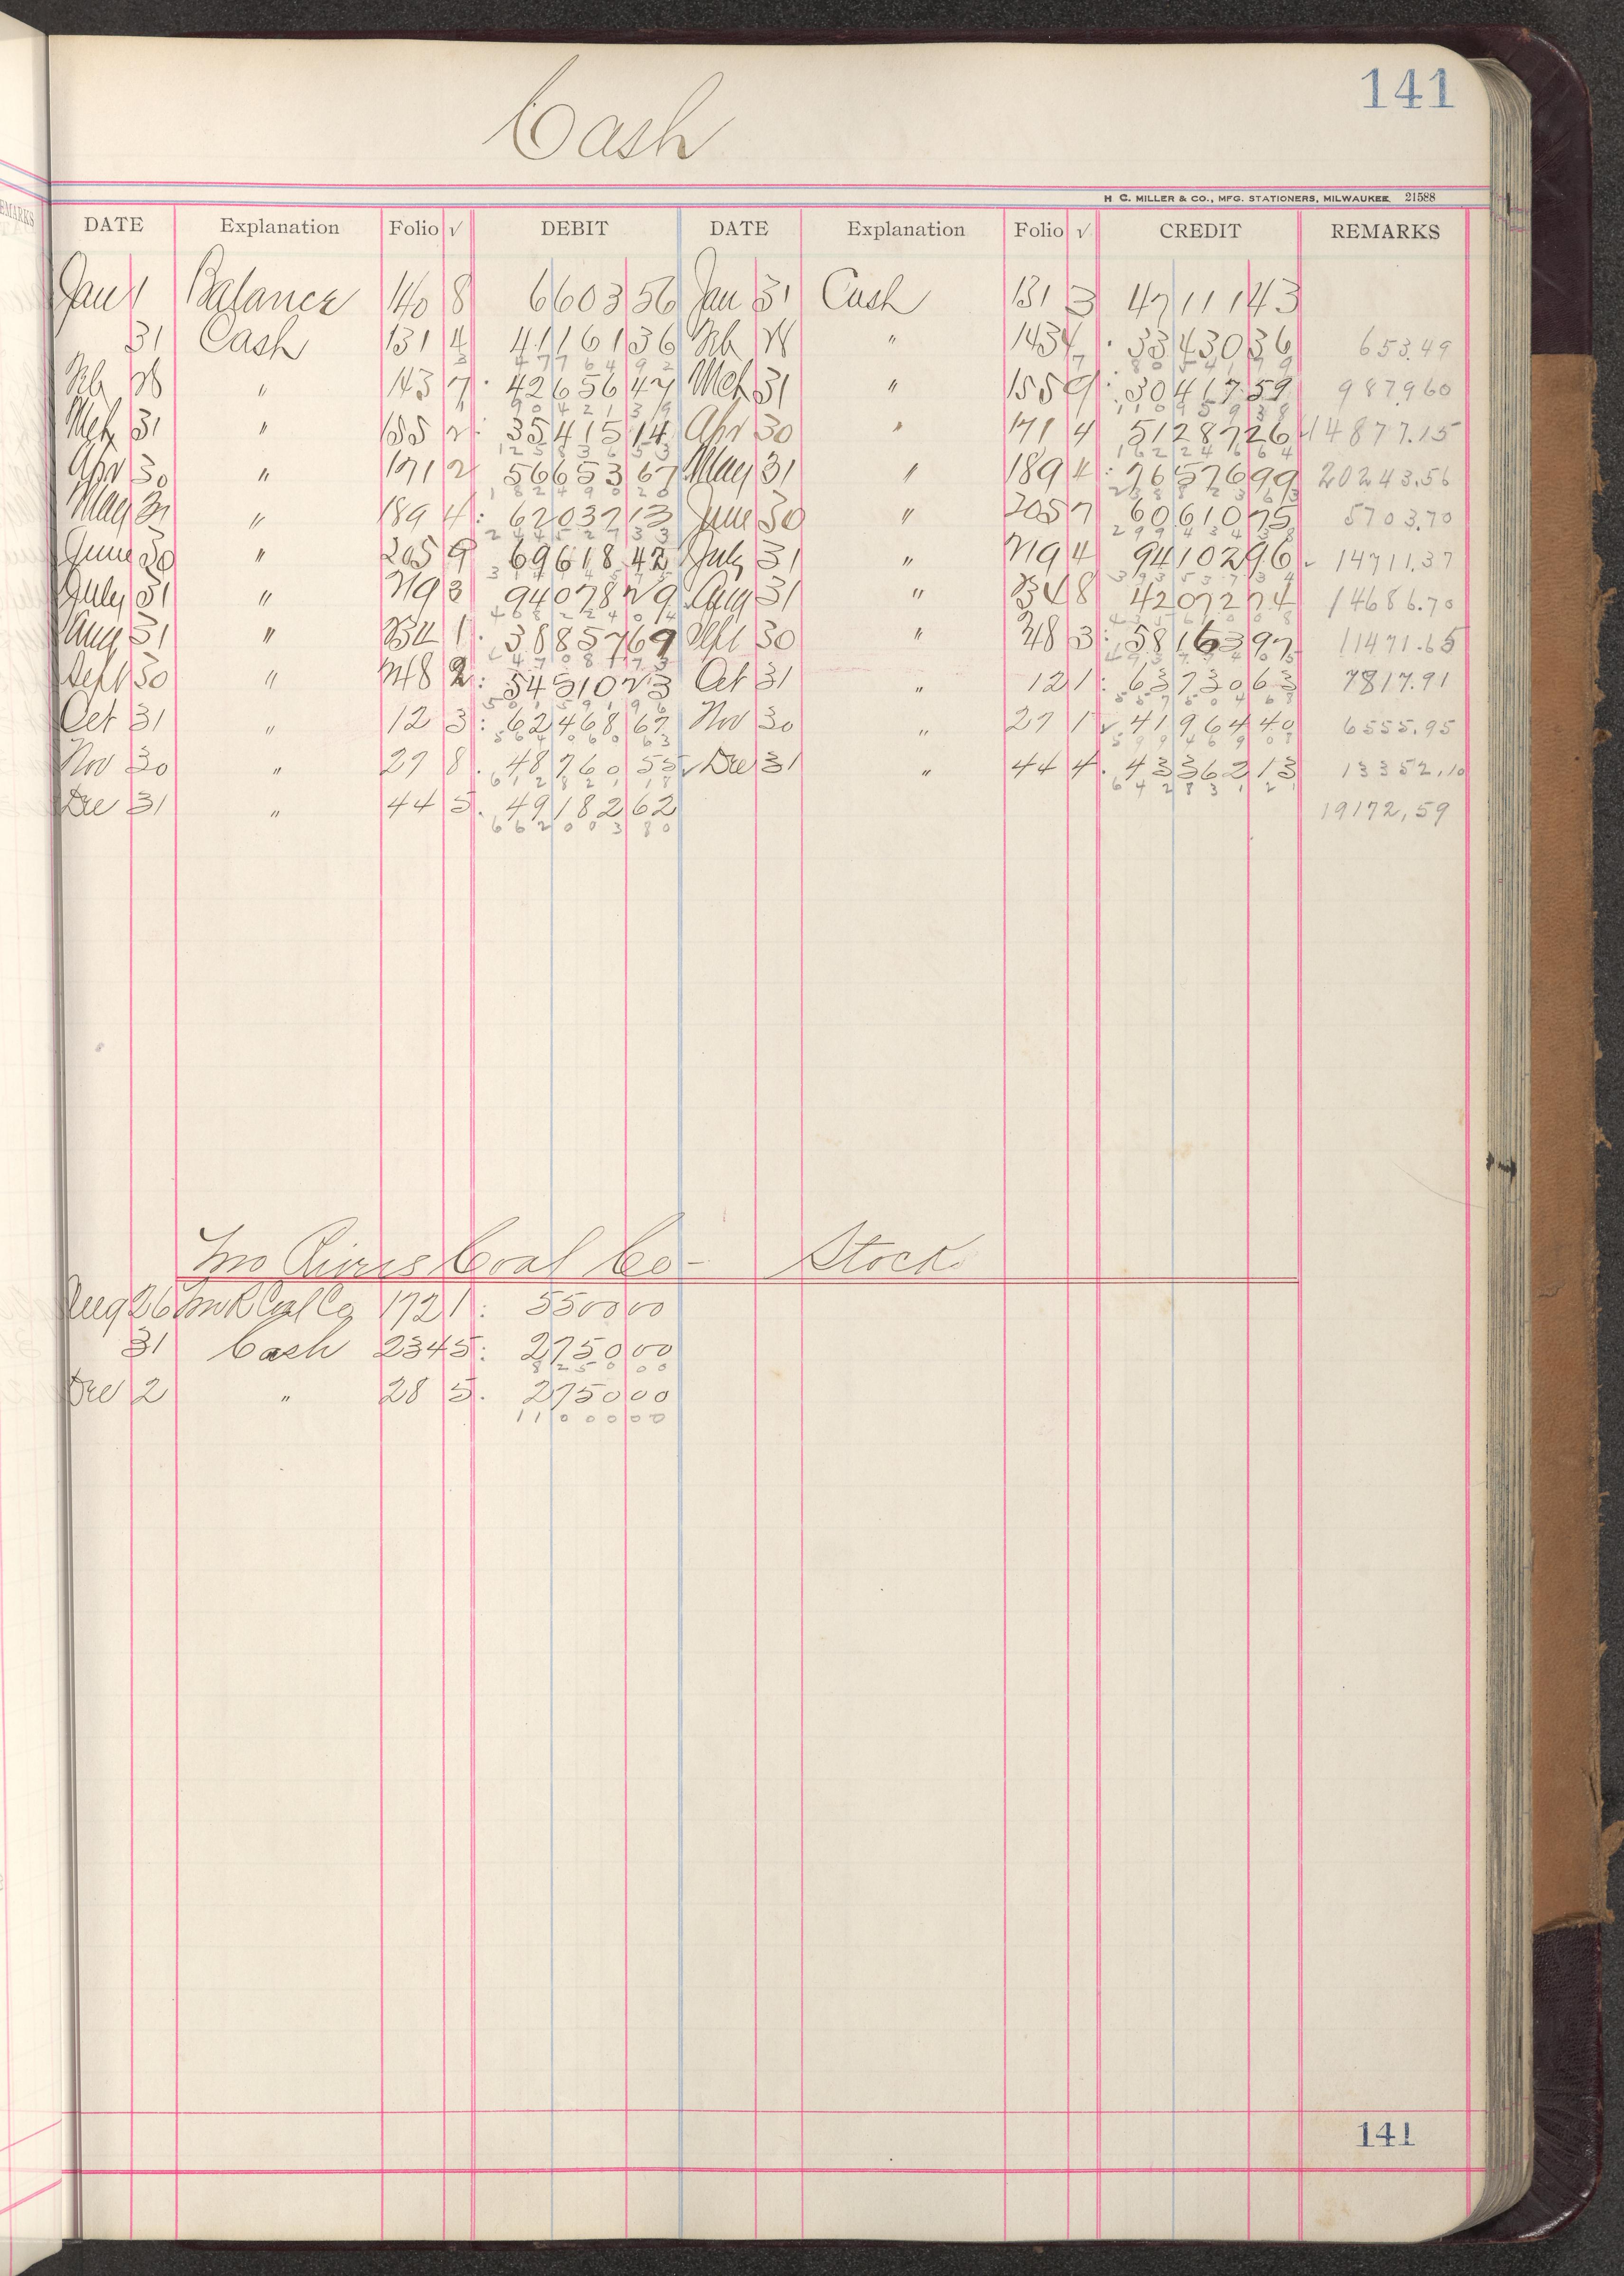 141
Cash
H. C. MILLER & CO., MFG. STATIONERS, MILWAUKEE 21588
DATE Explanation Folio √ DEBIT DATE Explanation Folio √ CREDIT REMARKS
Jan 1 Balance 140 8 6603 56 Jan 31 Cash 131 3 47111 43
31 Cash 131 4 41161 36 Feb 28 " 143 4 33430 36 653.49
47764 92 80541 79
Feb 28 " 143 7 42656 47 Mch 31 " 155 9 30417 59 9879 60
90421 39 110959 38
Mch 31 " 155 2 35415 14 Apr 30 " 171 4 51287 26 14877.15
125836 53 162246 64
Apr 30 " 171 2 56653 67 May 31 " 189 4 76576 99 20243.56
182490 20 238823 63
May 31 " 189 4 62037 13 June 30 " 205 7 60610 75 5703.70
244527 33 299434 38
June 30 " 205 9 69618 42 July 31 " 219 4 94102 96 14711.37
314145 75 393537 34
July 31 " 219 3 94078 29 Aug 31 " 234 8 42072 74 14686.70
408224 04 435610 08
Aug 31 " 234 1 38857 69 Sept 30 " 248 3 58163 97 11471.65
447081 73 493774 05
Sept 30 " 248 2 54510 23 Oct 31 " 12 1 63730 63 7817.91
501591 96 557504 68
Oct 31 " 12 3 62468 67 Nov 30 " 27 1 41964 40 6555.95
564060 63 599469 08
Nov 30 " 27 8 48760 55 Dec 31 " 44 4 43362 13 13352.10
612821 18 642831 21
Dec 31 " 44 5 49182 62 19172.59
662003 80
Mo River Coal Co- Stock
Aug 26 Mo R Coal Co 172 1 5500 00
31 Cash 234 5 2750 00
8250 00
Dec 2 " 28 5 2750 00
11000 00
141